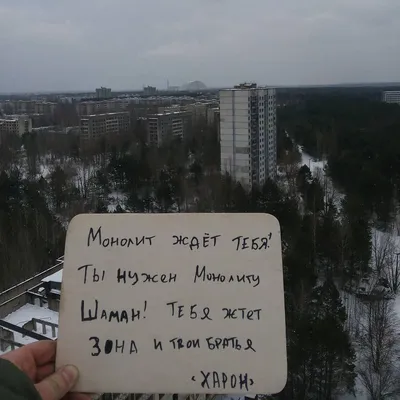 Монолит ждёт тебя!
Ты нужен Монолиту
Шаман! Тебя жтет
Зона и твои братья
«Харон»